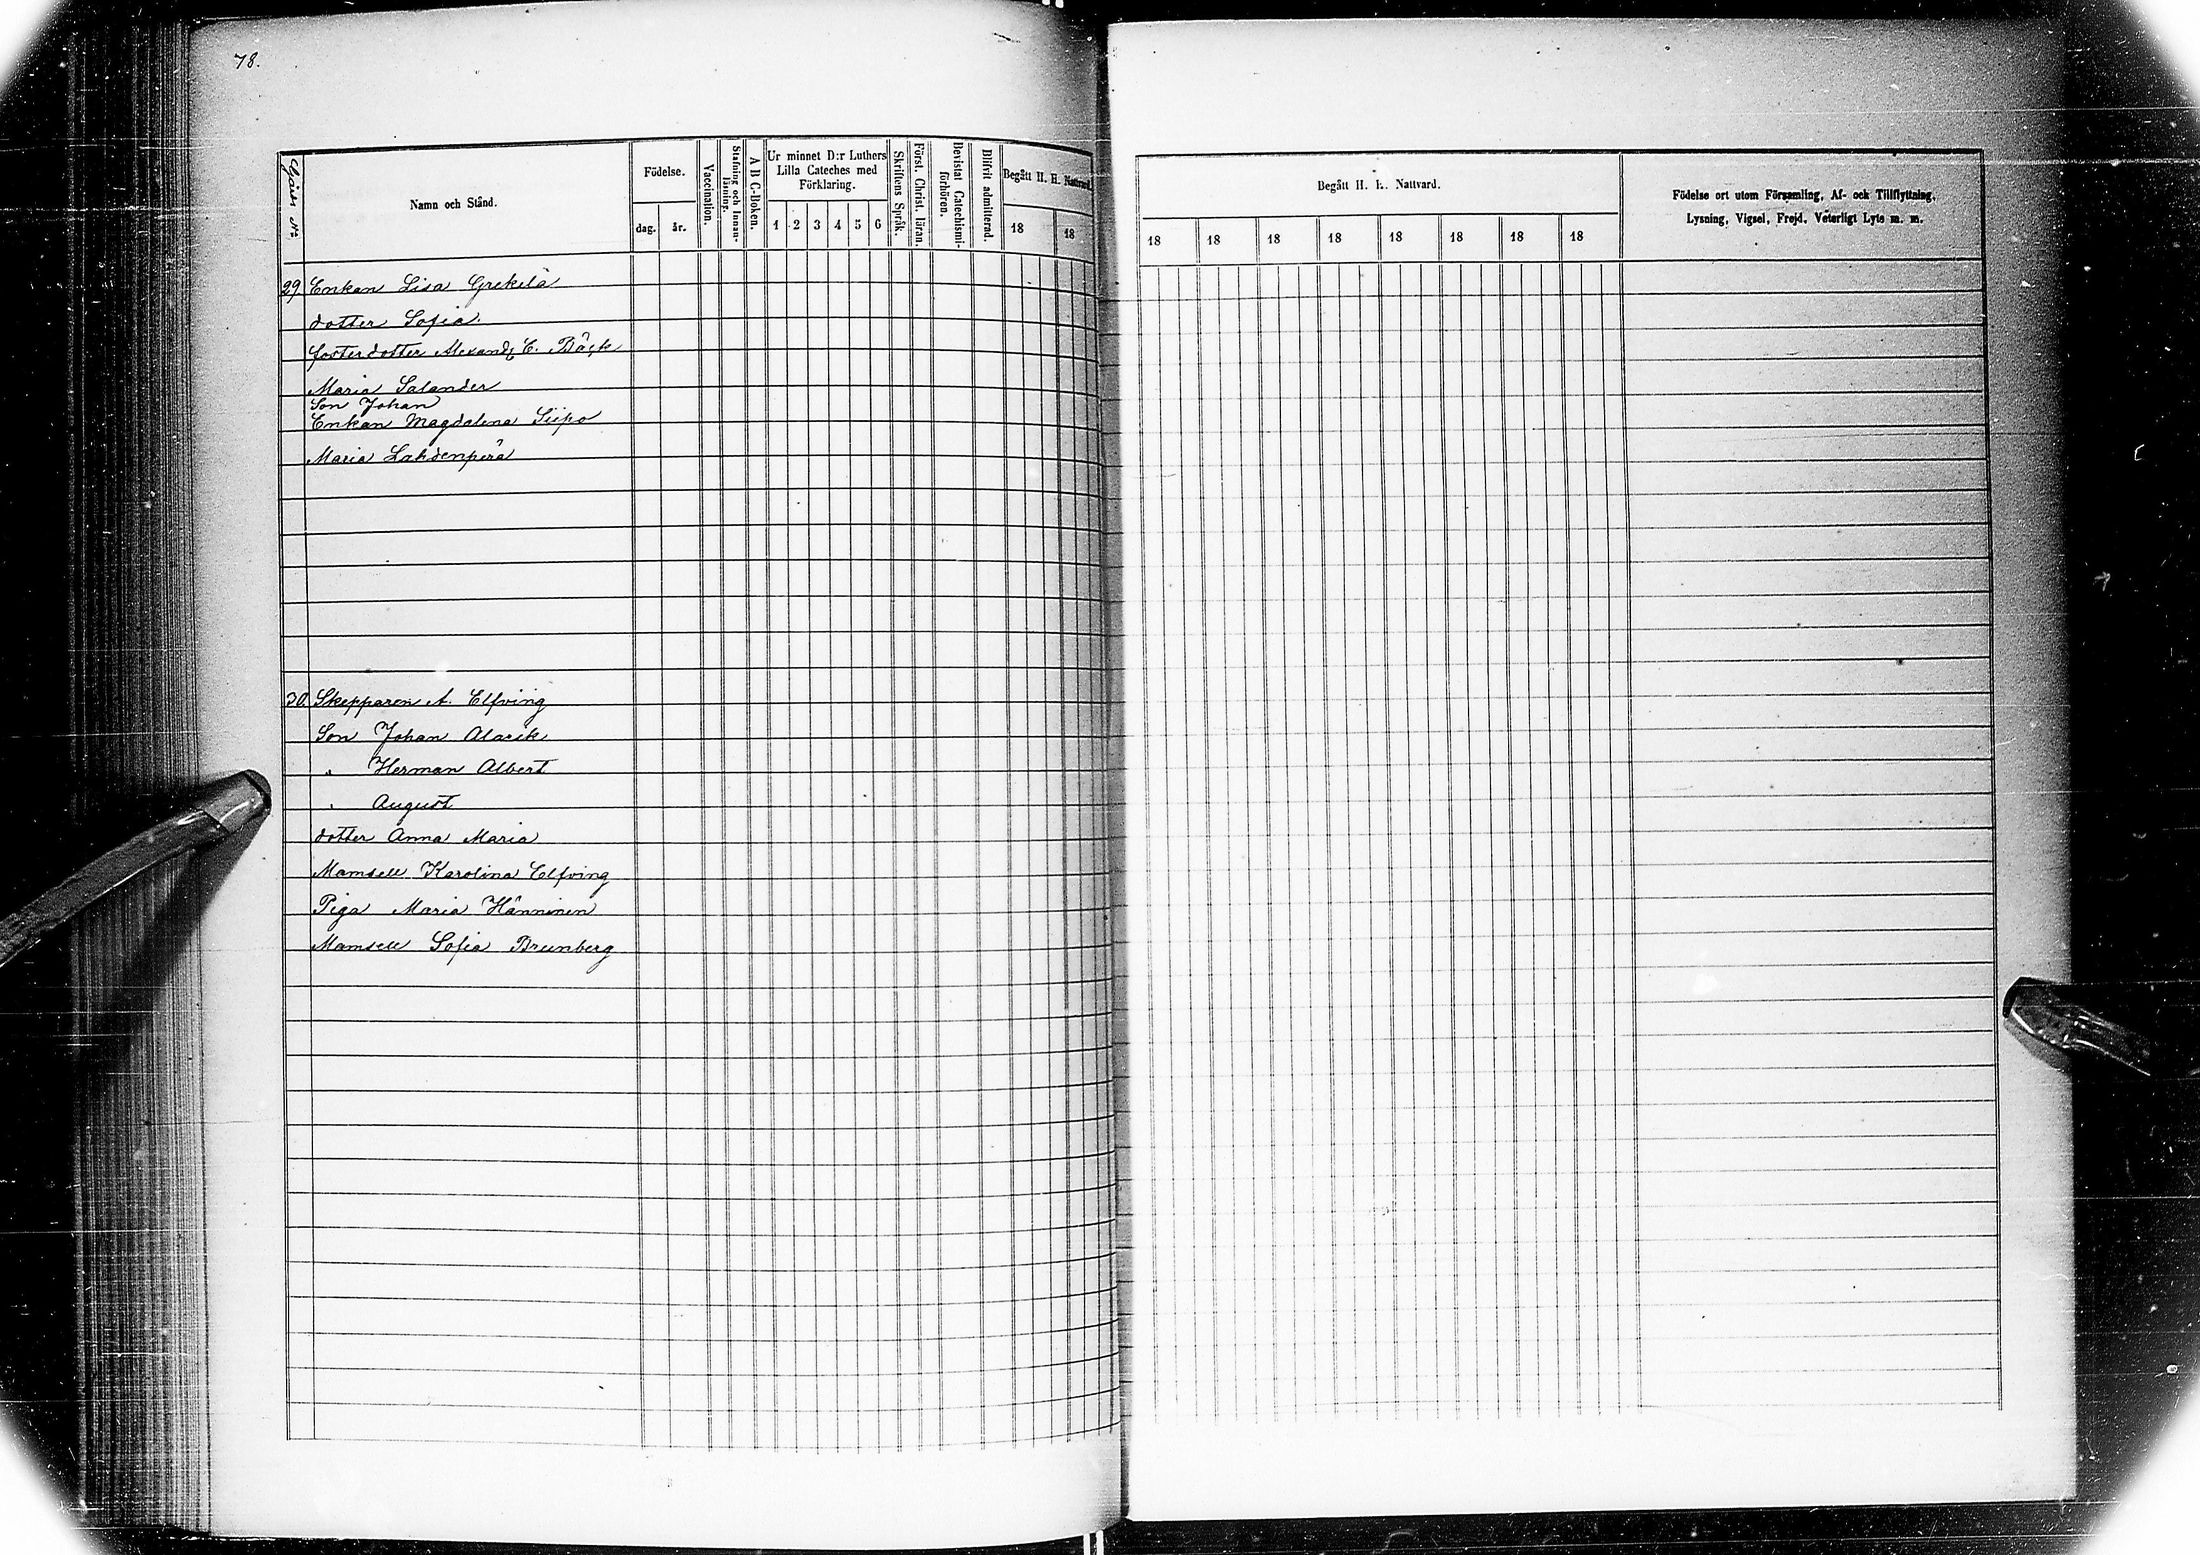 78.
Gårds Nº
Namn och Stånd.
Födelse.
dag. år.
Vaccination.
Stafning och Innan-läsning.
A B C-Boken.
Ur minnet D:r Luthers
Lilla Cateches med
Förklaring.
1 2 3 4 5 6
Skriftens Språk.
Först. Christ. läran.
Bevistat Catechismi-förhören.
Blifvit admitterad.
Begått H. H. Nattvard.
18 18
Begått H. H. Nattvard.
18 18 18 18 18 18 18 18
Födelse ort utom Församling, Af- och Tillflyttning,
Lysning, Vigsel, Frejd, Veterligt Lyte m. m.
29 Enkan Lisa Grekelä
dotter Sofia.
fosterdotter Alexandr. C. Bäck
Maria Salander
Son Johan
Enkan Magdalena Siipo
Maria Lahdenperä
30. Skepparen A. Elfving
Son Johan Alarik
" Herman Albert
" August
dotter Anna Maria
Mamsell Karolina Elfving
Piga Maria Hänninen
Mamsell Sofia Brunberg